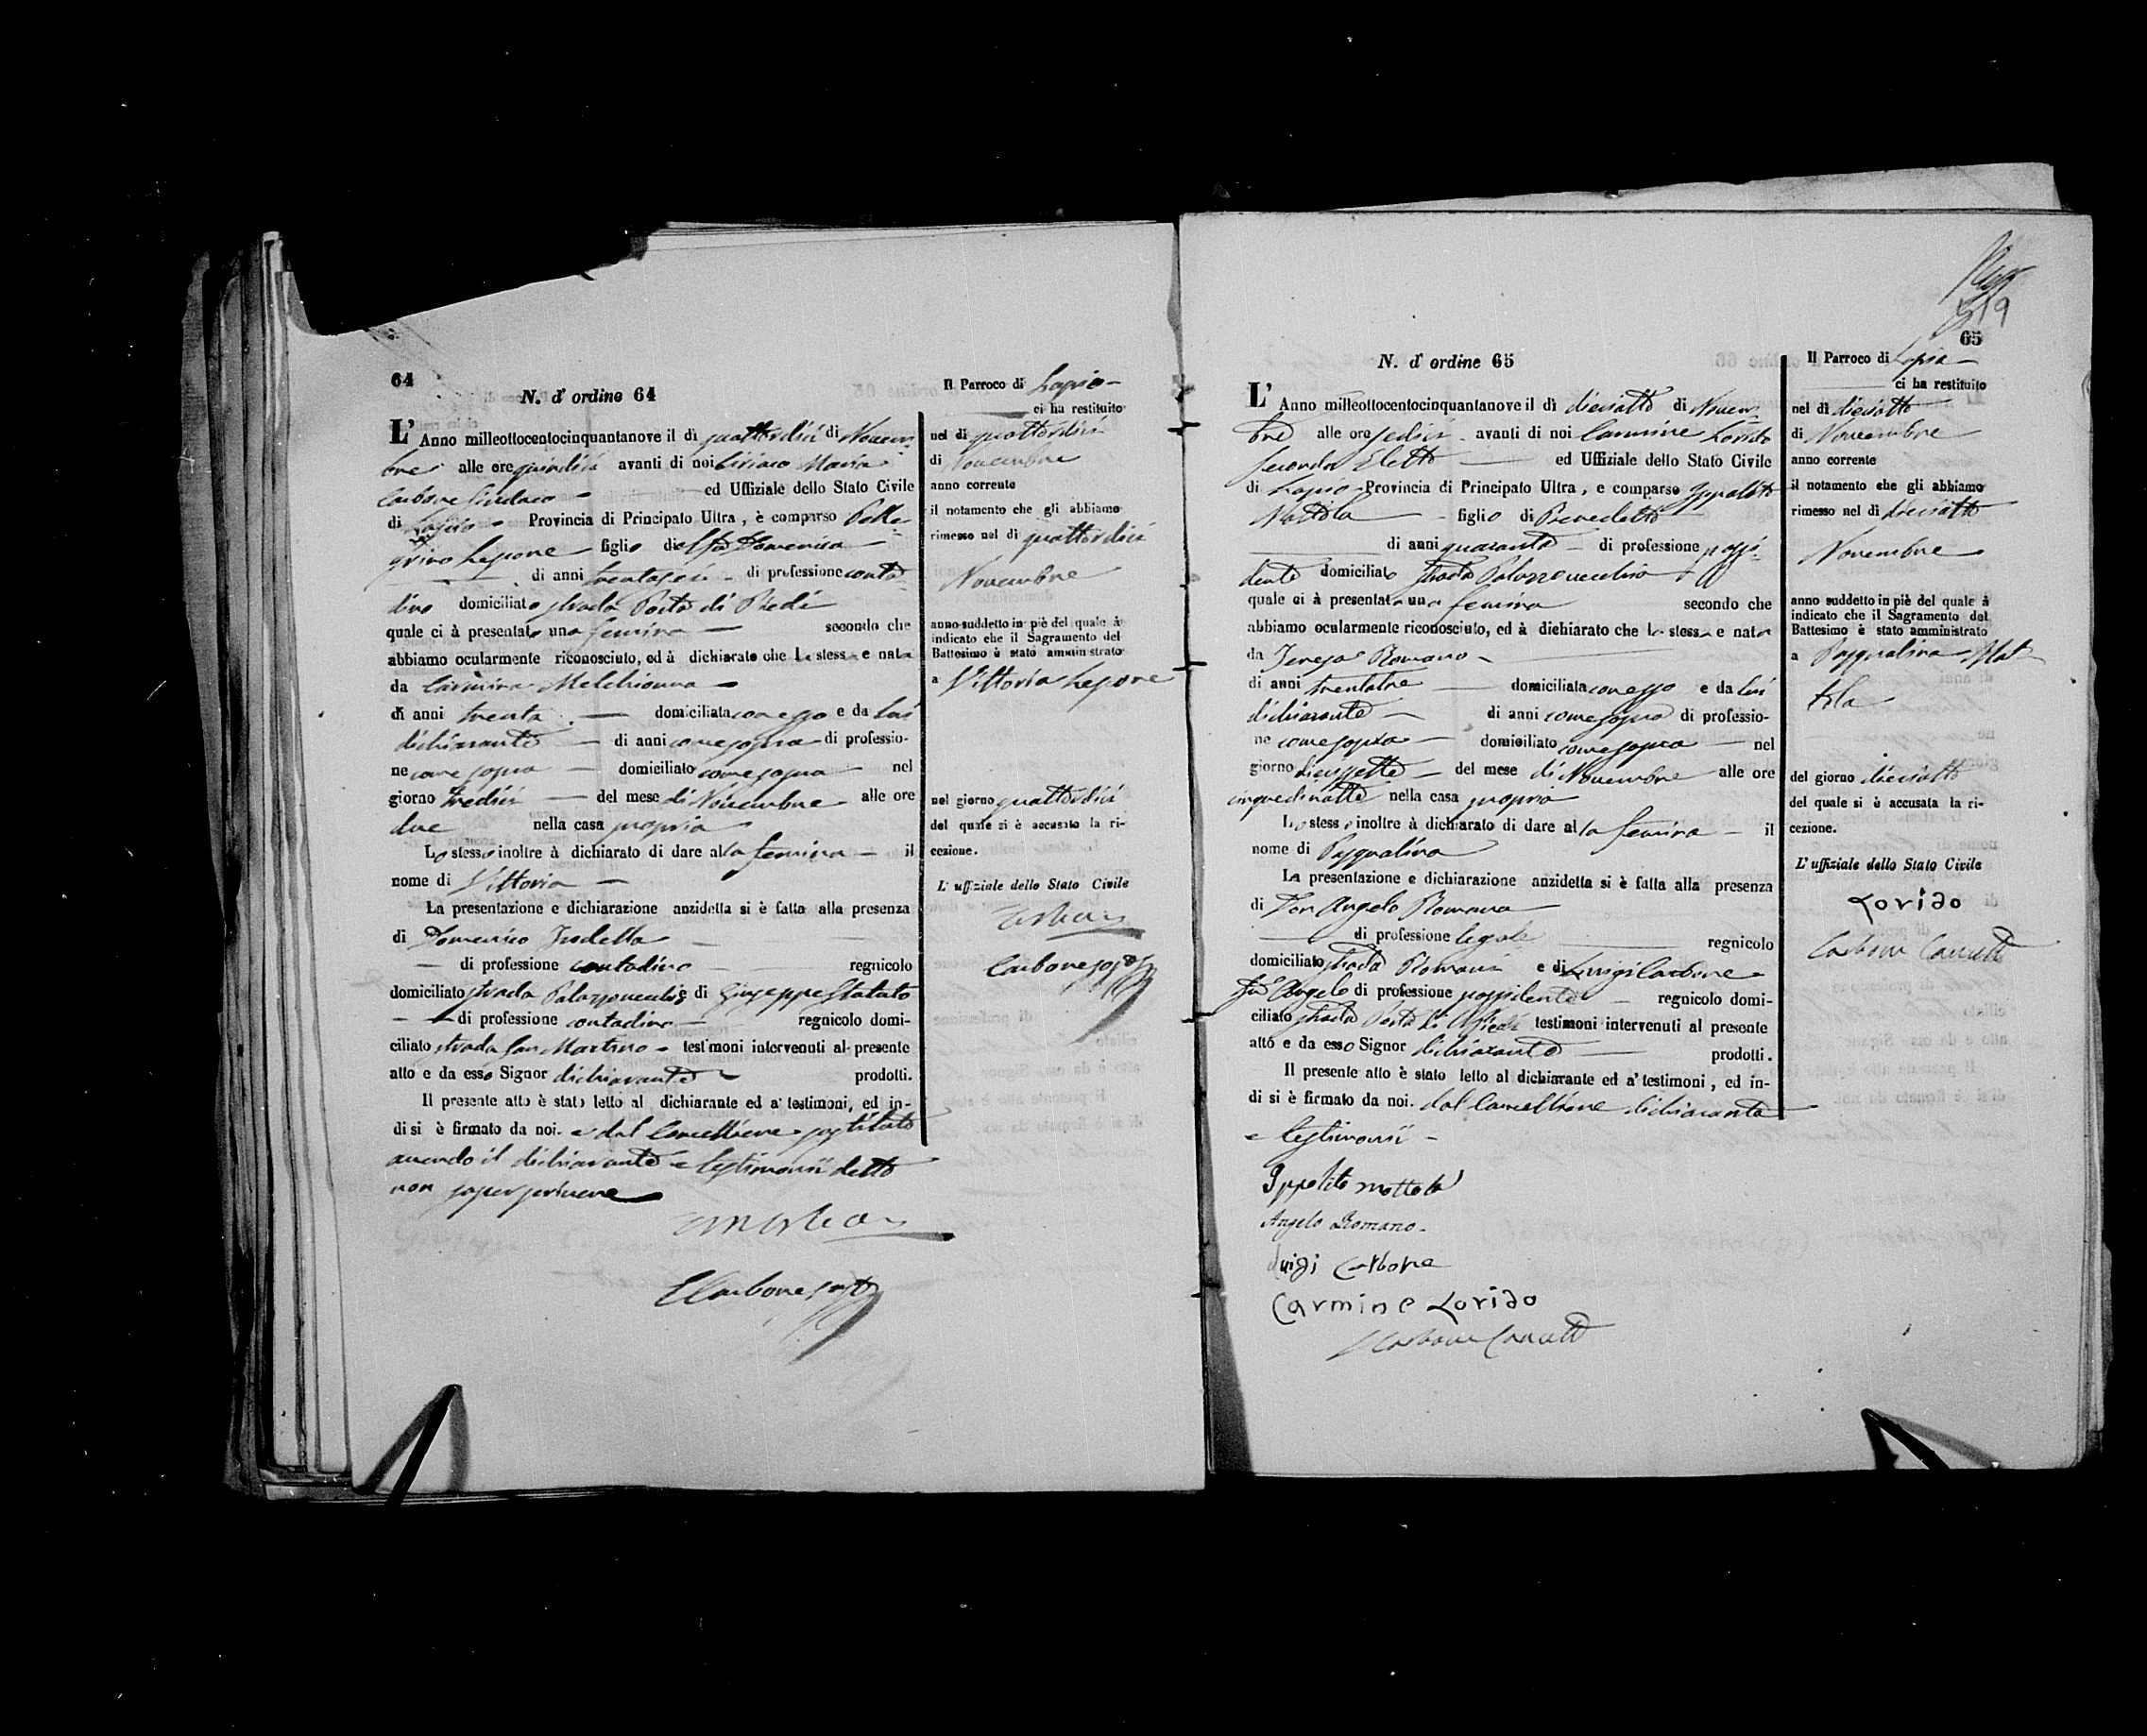 64
N. d' ordine 64
L' Anno milleottocentocinquantanove il dì quattordici di Novem-
bre alle ore quindici avanti di noi Ciriaco Maria
Carbone Sindaco ed Uffiziale dello Stato Civile
di Lapio Provincia di Principato Ultra, è comparso Pelle-
grino Lepone figlio di Domenico
di anni trentasei di professione conta-
dino domiciliato strada Porta di Piedi
quale ci à presentato una femina secondo che
abbiamo ocularmente riconosciuto, ed à dichiarato che la stessa e nata
da Carmina Melchionna
di anni trenta domiciliata con esso e da lui
dichiarante di anni come sopra di professio-
ne come sopra domiciliato come sopra nel
giorno tredici del mese di Novembre alle ore
due nella casa propria
Lo stesso inoltre à dichiarato di dare alla femina il
nome di Vittoria
La presentazione e dichiarazione anzidetta si è fatta alla presenza
di Domenico
di professione contadino regnicolo
domiciliato strada Palazzovecchio e di Giuseppe Statuto
di professione contadino regnicolo domi-
ciliato strada San Martino testimoni intervenuti al presente
atto e da esso Signor dichiarante prodotti.
Il presente atto è stato letto al dichiarante ed a' testimoni, ed in-
di si è firmato da noi. e dal Cancelliere sostituto
avendo il dichiarante e testimonii detto
non saper scrivere
Carbone sost
Il Parroco di Lapio
ci ha restituito
nel di quattordici
di Novembre
anno corrente
il notamento che gli abbiamo
rimesso nel di quattordici
Novembre
anno suddetto in piè del quale à
indicato che il Sagramento del
Battesimo è stato amministrato
a Vittoria Lepone
nel giorno quattordici
del quale si è accusato la ri-
cezione.
L' uffiziale dello Stato Civile
Carbone sost
65
N. d' ordine 65
L' Anno milleottocentocinquantanove il dì dieciotto di Novem-
bre alle ore sedici avanti di noi Carmine Lorido
secondo Eletto ed Uffiziale dello Stato Civile
di Lapio Provincia di Principato Ultra, e comparso Ippolito
Mottola figlio di Benedetto
di anni quaranta di professione possi-
dente domiciliato strada Palazzovecchio
quale ci à presentata una femina secondo che
abbiamo ocularmente riconosciuto, ed à dichiarato che la stessa e nata
da Teresa Romano
di anni trentatre domiciliata con esso e da lui
dichiarante di anni come sopra di professio-
ne come sopra domiciliato come sopra nel
giorno diecissette del mese di Novembre alle ore
cinque di notte nella casa propria
Lo stesso inoltre à dichiarato di dare alla femina il
nome di Pasqualina
La presentazione e dichiarazione anzidetta si è fatta alla presenza
di Don Angelo Romano
di professione legale regnicolo
domiciliato strada Romani e di Luigi Carbone
fu Angelo di professione possidente regnicolo domi-
ciliato strada Porta di Piedi testimoni intervenuti al presente
atto e da esso Signor dichiarante prodotti.
Il presente atto è stato letto al dichiarante ed a' testimoni, ed in-
di si è firmato da noi. dal Cancelliere dichiarante
e testimonii
Ippolito Mottola
Angelo Romano
Luigi Carbone
Carmine Lorido
Carbone Canc
Il Parroco di Lapio
ci ha restituito
nel dì dieciotto
di Novembre
anno corrente
il notamento che gli abbiamo
rimesso nel di dieciotto
Novembre
anno suddetto in piè del quale à
indicato che il Sacramento del
Battesimo è stato amministrato
a Pasqualina Mot-
tola
del giorno dieciotto
del quale si è accusata la ri-
cezione.
L' uffiziale dello Stato Civile
Lorido
Carbone Canc